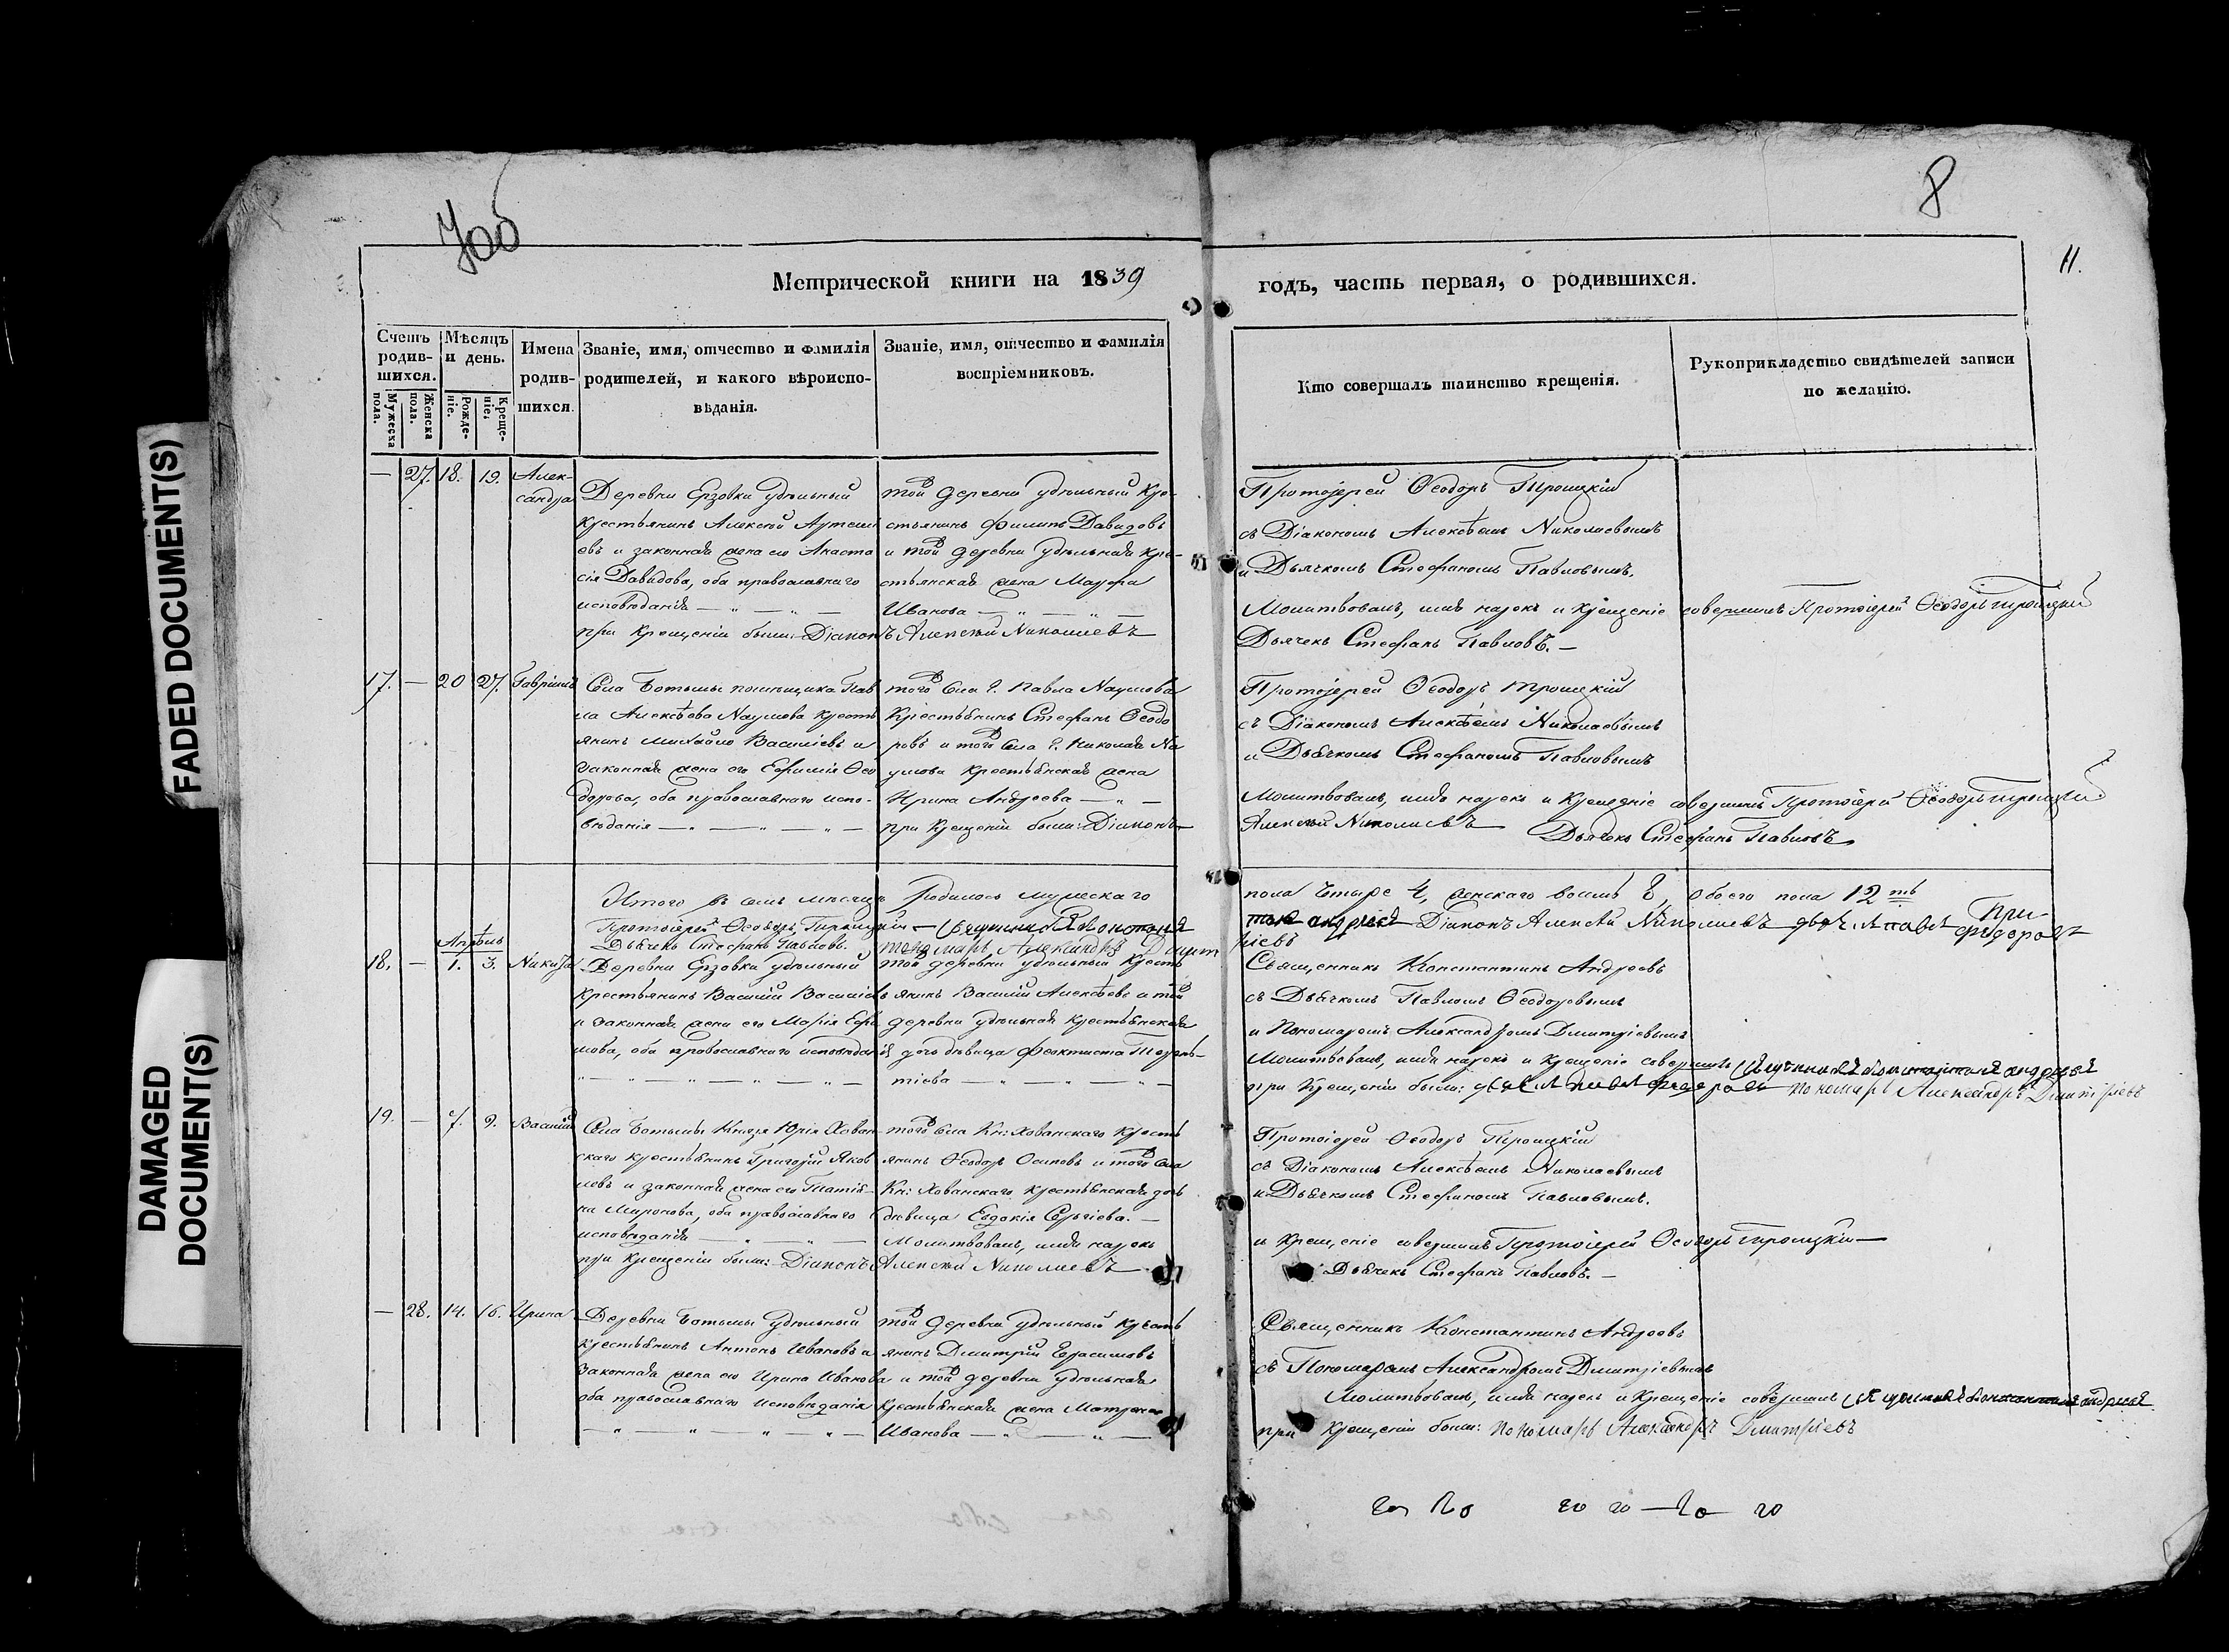 FADED DOCUMENT(S)
DAMAGED
DOCUMENT(S)
8
11.
Метрической книги на 1839
годъ, часть первая, о родившихся.
Счетъ родив-шихся.
Мужеска пола.
Женска пола.
Мѣсяцъ и день.
Рожде-ніе.
Креще-ніе.
Имена родив-шихся.
Званіе, имя, отчество и фамилія родителей, и какого вѣроиспо-вѣданія.
Званіе, имя, отчество и фамилія воспріемниковъ.
Кто совершалъ таинство крещенія.
Рукоприкладство свидѣтелей записи по желанію.
— 27. 18. 19. Алек-
сандра
Деревни Ерзовки удѣльный
крестьянинъ Алексѣй Артемі
евъ и законная жена его Анаста
сія Давидова, оба православнаго
исповѣданія
той деревни удѣльный кре-
стьянинъ Филипъ Давидовъ
и той деревни удѣльная кре-
стьянская жена Марфа
Иванова
при крещеніи были: Діаконъ Алексѣй Николаевъ
Протоіерей Ѳеодоръ Троицкій
съ Діакономъ Алексѣемъ Николаевымъ
и Дьячкомъ Стефаномъ Павловымъ.
Молитвовалъ, имя нарекъ и крещеніе совершилъ Протоіерей Ѳеодоръ Троицкій
Дьячекъ Стефанъ Павловъ. —
17. — 20 27. Гавріилъ
Села Ботьмы помѣщика Пав
ла Алексѣева Наумова кресть
янинъ Михайло Василіевъ и
законная жена его Евфимія Ѳео
дорова, оба православнаго испо-
вѣданія
того села г. Павла Наумова
крестьянинъ Стефанъ Ѳеодо
ровъ и того села г. Николая На
умова крестьянская жена
Ирина Андреева
при крещеніи были: Діаконъ
Протоіерей Ѳеодоръ Троицкій
съ Діакономъ Алексѣемъ Николаевымъ
и Дьячкомъ Стефаномъ Павловымъ
Молитвовалъ, имя нарекъ и крещеніе совершилъ Протоіерей Ѳеодоръ Троицкій
Алексѣй Николаевъ Дьячекъ Стефанъ Павловъ
Итого въ семъ мѣсяцѣ родилось мужескаго
пола четыре 4, женскаго восемь 8, обоего пола 12ть
Протоіерей Ѳеодоръ Троицкій
Діаконъ Алексѣй Николаевъ
Дьячекъ Стефанъ Павловъ.
Пономарь Александръ Дмит
ріевъ
Апрѣль
18. — 1. 3. Никита
Деревни Ерзовки удѣльный
крестьянинъ Василій Василіевъ
и законная жена его Марія Ефи
мова, оба православнаго исповѣданія
той деревни удѣльный кресть
янинъ Василій Алексѣевъ и той
деревни удѣльная крестьянская
дочь дѣвица Феоктиста Терень-
тіева
Священникъ Константинъ Андреевъ
съ Дьячкомъ Павломъ Ѳеодоровымъ
и Пономаремъ Александромъ Дмитріевымъ
Молитвовалъ, имя нарекъ и крещеніе совершилъ Священникъ Константинъ Андреевъ
при крещеніи были: Пономарь Александръ Дмитріевъ
19. — 7. 9. Василій
Села Ботьмы Князя Юрія Хован
скаго крестьянинъ Григорій Яков
левъ и законная жена его Татія
на Миронова, оба православнаго
исповѣданія
того села Кн: Хованскаго кресть
янинъ Ѳеодоръ Осиповъ и того села
Кн: Хованскаго крестьянская дочь
дѣвица Евдокія Сергіева. —
Молитвовалъ, имя нарекъ
при крещеніи были: Діаконъ Алексѣй Николаевъ
Протоіерей Ѳеодоръ Троицкій
съ Діакономъ Алексѣемъ Николаевымъ
и Дьячкомъ Стефаномъ Павловымъ.
и крещеніе совершилъ Протоіерей Ѳеодоръ Троицкій
Дьячекъ Стефанъ Павловъ. —
— 28. 14. 16. Ирина
Деревни Ботьмы удѣльный
крестьянинъ Антонъ Ивановъ и
законная жена его Ирина Иванова
оба православнаго исповѣданія
той деревни удѣльный кресть
янинъ Дмитрій Герасимовъ
и той деревни удѣльная
крестьянская жена Матрена
Иванова
Священникъ Константинъ Андреевъ
съ Пономаремъ Александромъ Дмитріевымъ
Молитвовалъ, имя нарекъ и крещеніе совершилъ Священникъ Константинъ Андреевъ
при крещеніи были: Пономарь Александръ Дмитріевъ